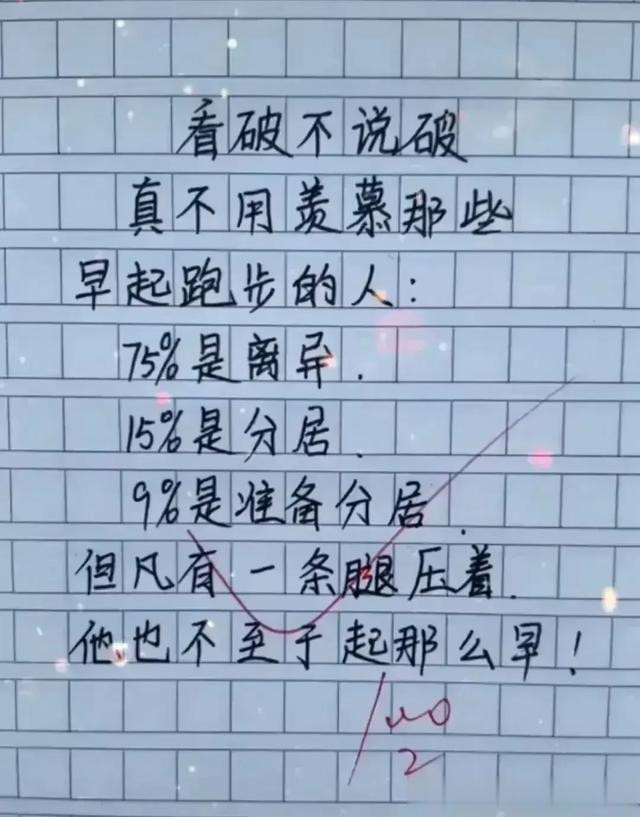 看破不说破
真不用羡慕那些
早起跑步的人：
75%是离异.
15%是分居.
9%是准备分居.
但凡有一条腿压着.
他也不至于起那么早！